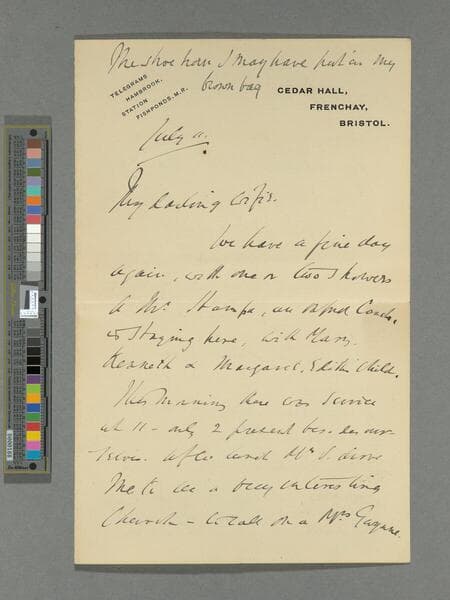 The shoe horn I may have put in my
brown bag
TELEGRAMS
HAMBROOK.
STATION
FISHPONDS, M.R.
CEDAR HALL,
FRENCHAY,
BRISTOL.
July 11.
My darling wifie.
We have a fine day
again, with one or two showers
A Mr. an Oxford
is staying here, with Mary,
Kenneth & Margaret, Edith's Child.
This morning there was Service
at 11 - only 2 present besides our-
selves. After lunch Mr S. drove
me to see a very interesting
Church - to call on a Mrs